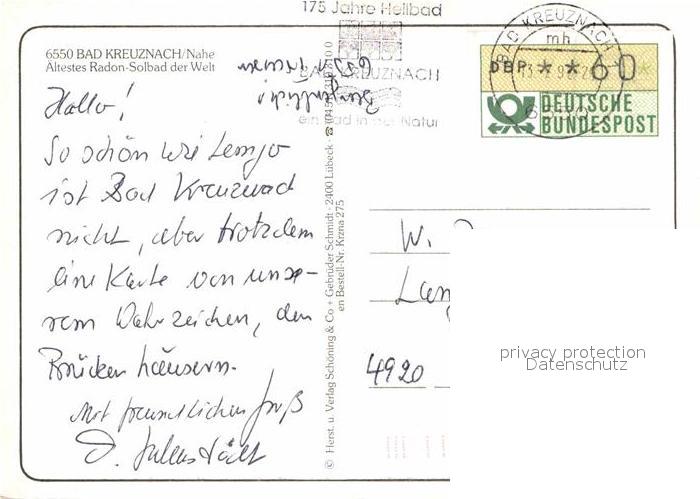 175 Jahre Heilbad
BAD KREUZNACH
ein Bad in der Natur
BAD KREUZNACH
mh
DBP * * 60 *
DEUTSCHE
BUNDESPOST
6550 BAD KREUZNACH/Nahe
Ältestes Radon-Solbad der Welt
Hallo!
So schön wie Lemgo
ist Bad Kreuznach
nicht, aber trotzdem
eine Karte von unse-
rem Wahrzeichen, den
Brückenhäusern.
Mit freundlichem Gruß
© Herst. u. Verlag Schöning & Co + Gebrüder Schmidt · 2400 Lübeck ·
en Bestell-Nr. Krzna 275
W.
Lan
4920
privacy protection
Datenschutz